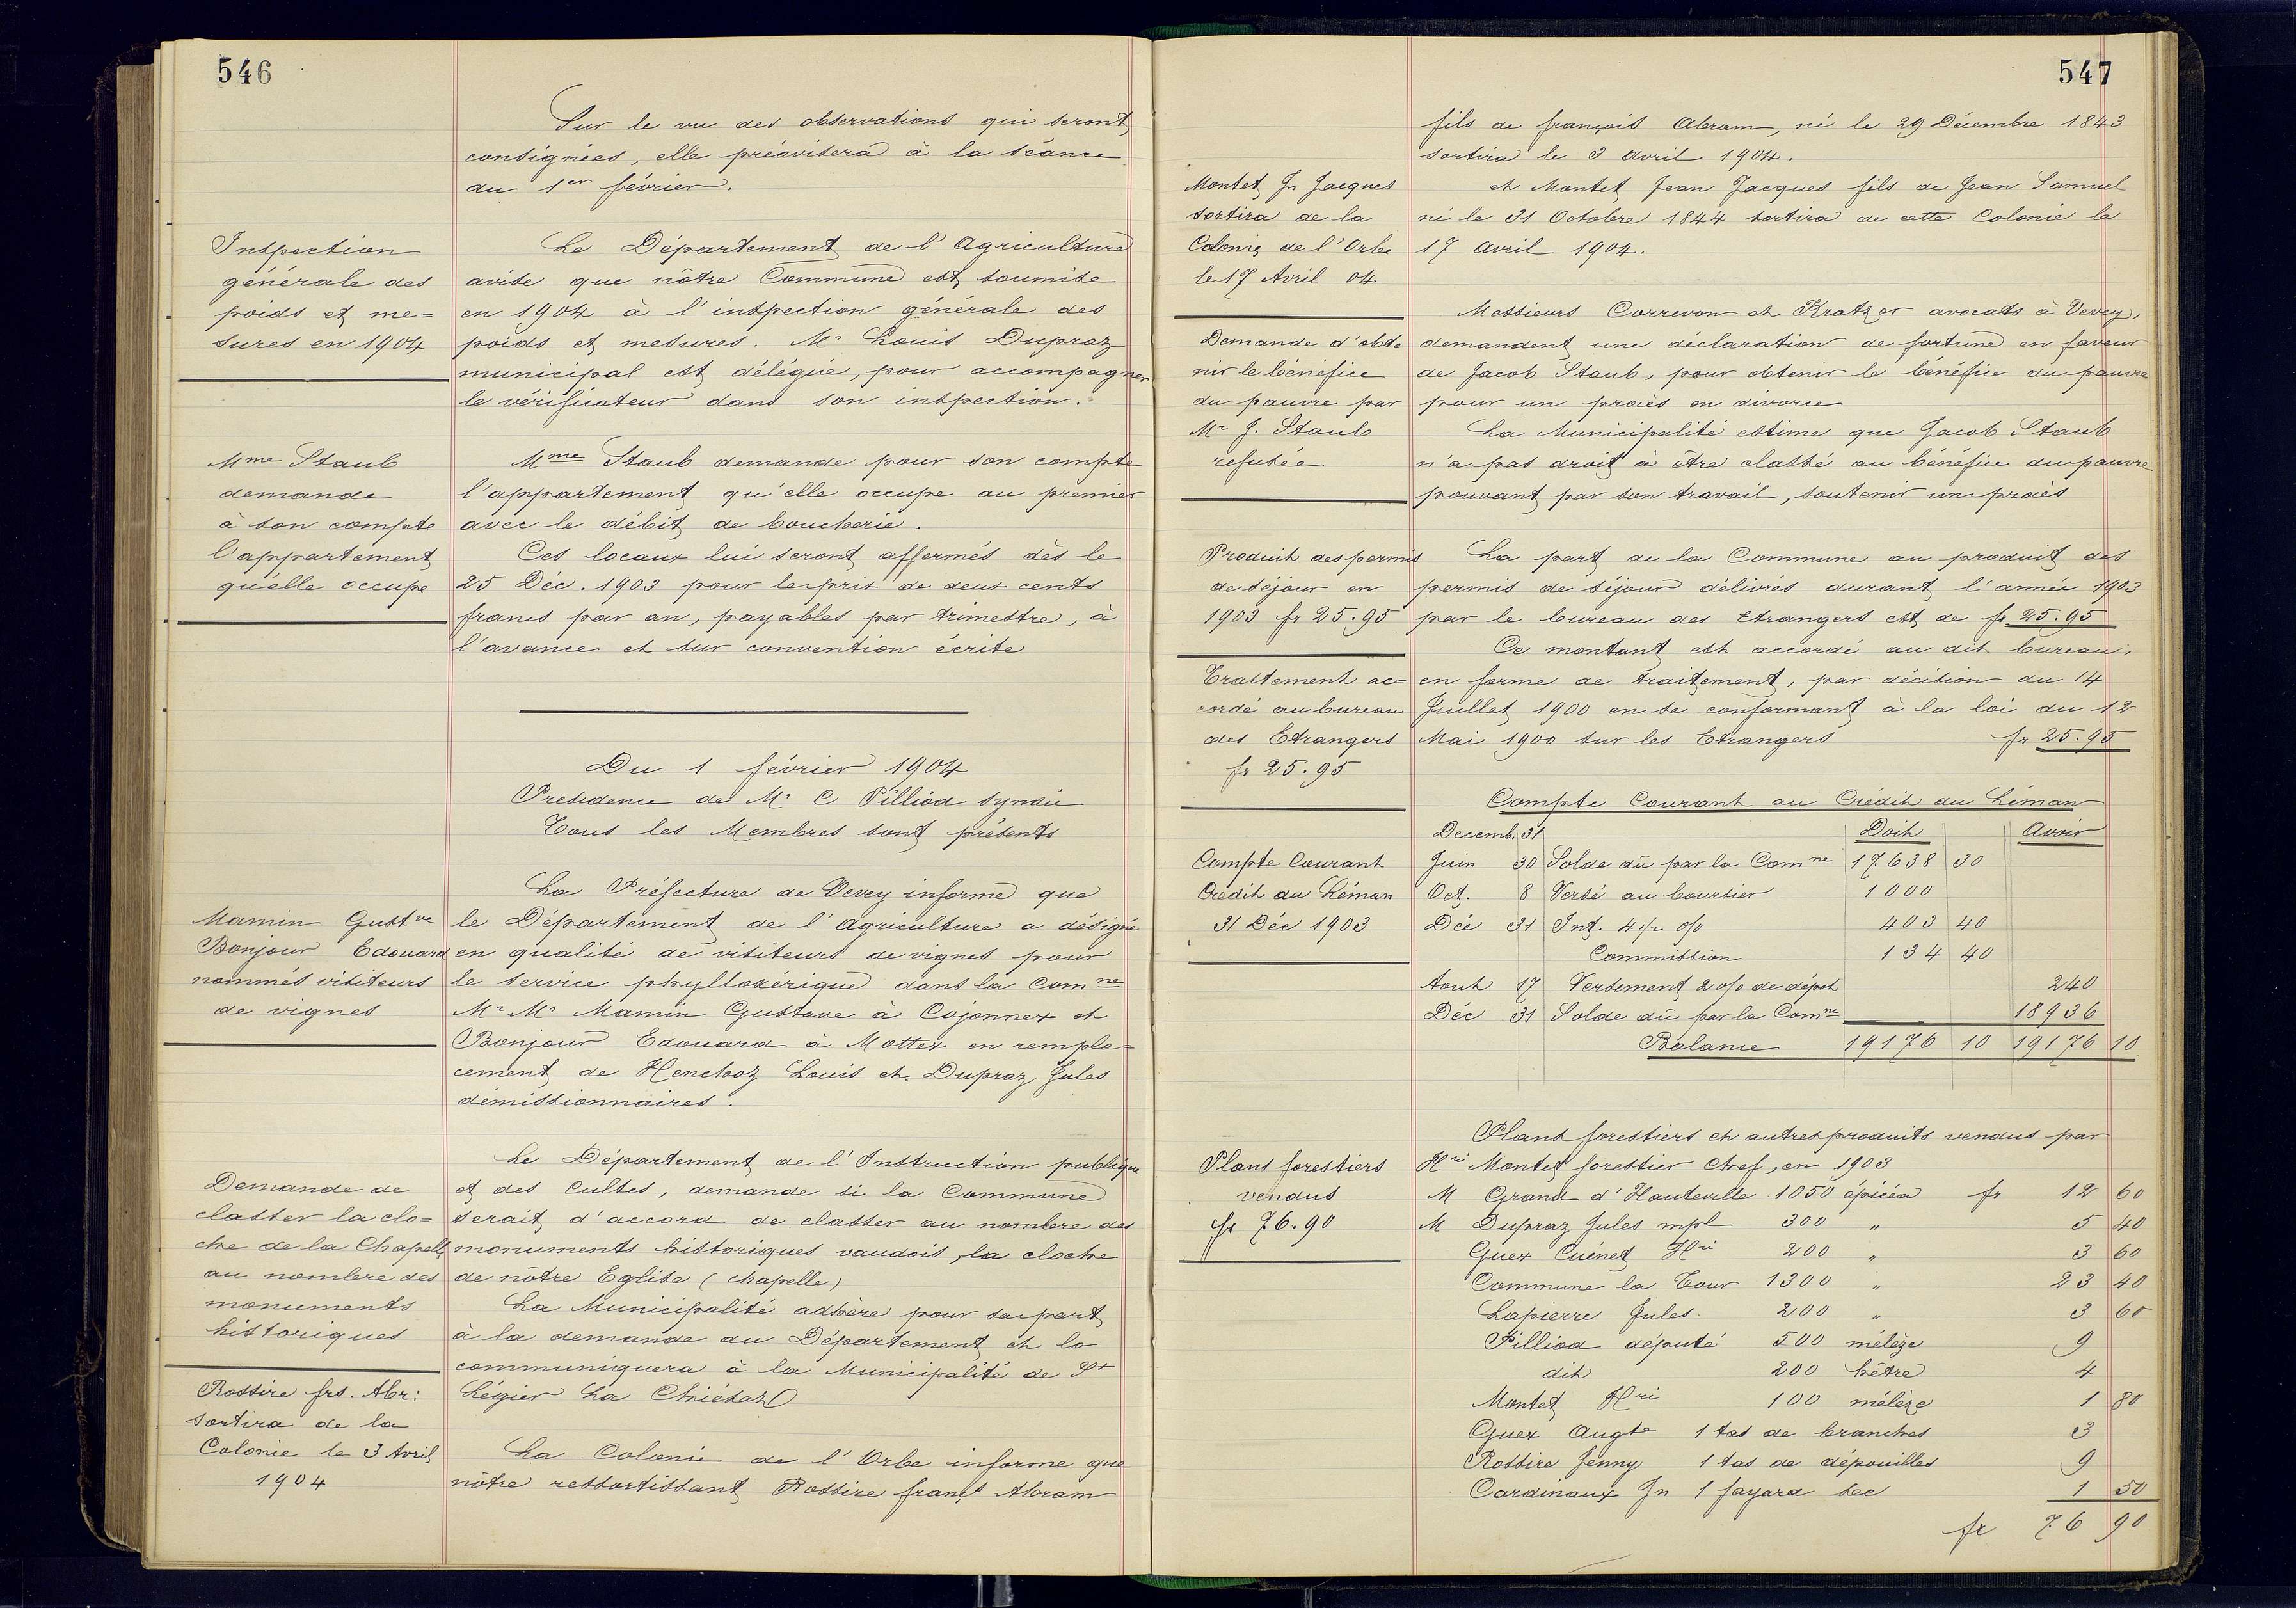 546
Sur le vu des observations qui seront
consignées, elle préavisera à la séance
du 1er février.
Inspection
générale des
poids et me=
sures en 1904
Le Département de l'Agriculture
avise que nôtre Commune est soumise
en 1904 à l'inspection générale des
poids et mesures. Mr Louis Dupraz
municipal est délégué, pour accompagner
le vérificateur dans son inspection.
Mme Staub
demande
à son compte
l'appartement
qu'elle occupe
Mme Staub demande pour son compte
l'appartement qu'elle occupe au premier
avec le débit de boucherie.
Ces locaux lui seront affermés dès le
25 Déc. 1903 pour le prix de deux cents
francs par an, payables par trimestre, à
l'avance et sur convention écrite
Du 1 février 1904
Présidence de Mr C Pilliod syndic
Tous les Membres sont présents
Mamin Gustve
Bonjour Edouard
nommés visiteurs
de vignes
La Préfecture de Vevey informe que
le Département de l'Agriculture a désigné
en qualité de visiteurs de vignes pour
le service phylloxérique dans la Comne
Mr Mr Mamin Gustave à Cojonnex et
Bonjour Edouard à Mottex en rempla=
cement de Henchoz Louis et Dupraz Jules
démissionnaires.
Demande de
classer la clo=
che de la Chapelle
au nombre des
monuments
historiques
Le Département de l'Instruction publique
et des Cultes, demande si la Commune
serait d'accord de classer au nombre des
monuments historiques vaudois, la cloche
de nôtre Eglise (chapelle)
La Municipalité adhère pour sa part
à la demande du Département et la
communiquera à la Municipalité de St
Légier La Chiésaz
Rossire frs. Abr:
sortira de la
Colonie le 3 Avril
1904
La Colonie de l'Orbe informe que
nôtre ressortissant Rossire franç Abram
547
fils de françois Abram, né le 29 Décembre 1843
sortira le 3 avril 1904.
Montet Jn Jacques
sortira de la
Colonie de l'Orbe
le 17 Avril 04
et Montet Jean Jacques fils de Jean Samuel
né le 31 Octobre 1844 sortira de cette Colonie le
17 Avril 1904.
Demande d'obte
nir le bénéfice
du pauvre par
Mr J. Staub
refusée
Messieurs Correvon et Kratzer avocats à Vevey,
demandent une déclaration de fortune en faveur
de Jacob Staub, pour obtenir le bénéfice du pauvre
pour un procès en divorce
La Municipalité estime que Jacob Staub
n'a pas droit à être classé au bénéfice du pauvre
pouvant par son travail, soutenir un procès
Produit des permis
de séjour en
1903 fr 25.95
La part de la Commune au produit des
permis de séjour délivrés durant l'année 1903
par le bureau des Etrangers est de fr 25.95
Traitement ac=
cordé au bureau
des Etrangers
fr 25.95
Ce montant est accordé au dit bureau,
en forme de traitement, par décision du 14
Juillet 1900 en se conformant à la loi du 12
Mai 1900 sur les Etrangers fr 25.95
Compte Courant
Crédit du Léman
31 Déc 1903
Compte Courant au Crédit du Léman
Decemb. 31 Doit Avoir
Juin 30 Solde dû par la Comne 17638 30
Oct. 8 Versé au boursier 1000
Déc 31 Int. 4 1/2 o/o 403 40
Commission 134 40
Aout 17 Versement 2 o/o de dépot 240
Déc 31 Solde dû par la Comne 18936
Balance 19176 10 19176 10
Plans forestiers
vendus
fr 76.90
Plans forestiers et autres produits vendus par
Hri Montet forestier chef, en 1903
M Grand d'Hauteville 1050 épicéa fr 12 60
M Dupraz Jules mpl 300 " 5 40
Guex Cuénet Hri 200 " 3 60
Commune la Tour 1300 " 23 40
Lapierre Jules 200 " 3 60
Pilliod député 500 mélèze 9
dit 200 hêtre 4
Montet Hri 100 mélèze 1 80
Guex Augte 1 tas de branches 3
Rossire Jenny 1 tas de dépouilles 9
Cardinaux Jn 1 fayard sec 1 50
fr 76 90